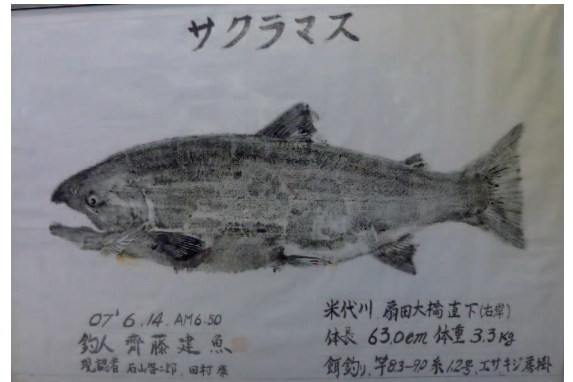 サクラマス
07' 6.14. AM6.50
釣人 齊藤建魚
現認者 石山 郎、田村
米代川 扇田大橋直下(右岸)
体長 63.0cm 体重 3.3kg
餌釣り、竿8.3-9.0 糸1.2号、エサキジ